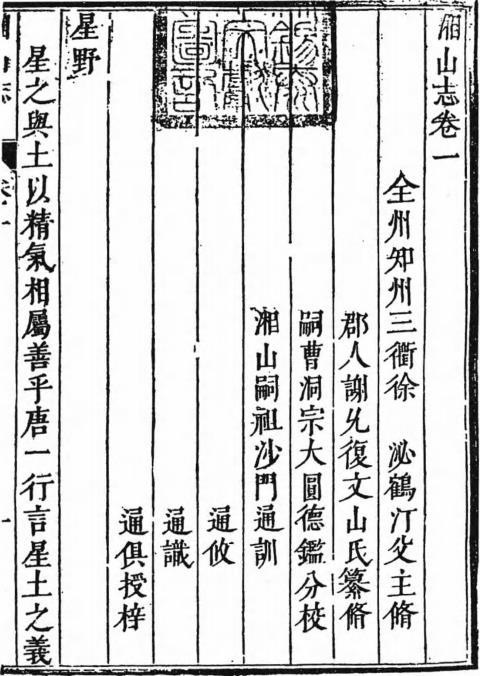 湘山志卷一
全州知州三衢徐　泌鶴汀父主脩
郡人謝允復文山氏纂脩
嗣曹洞宗大圓德鑑分校
湘山嗣祖沙門通訓
通攸
通識
通俱授梓
星野
星之與土以精氣相屬善乎唐一行言星土之義